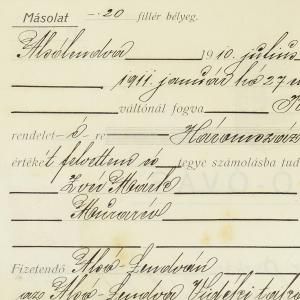 Másolat -.20 fillér bélyeg.
Alsólendva 1910. július
1911. január hó 27
váltónál fogva
rendelet-é-re Háromszáz
értéké t felvettem és tegye számolásba
Zvér Márk
Murarév
Fizetendő Alsó-Lendván
az Alsó-Lendva Vidéki